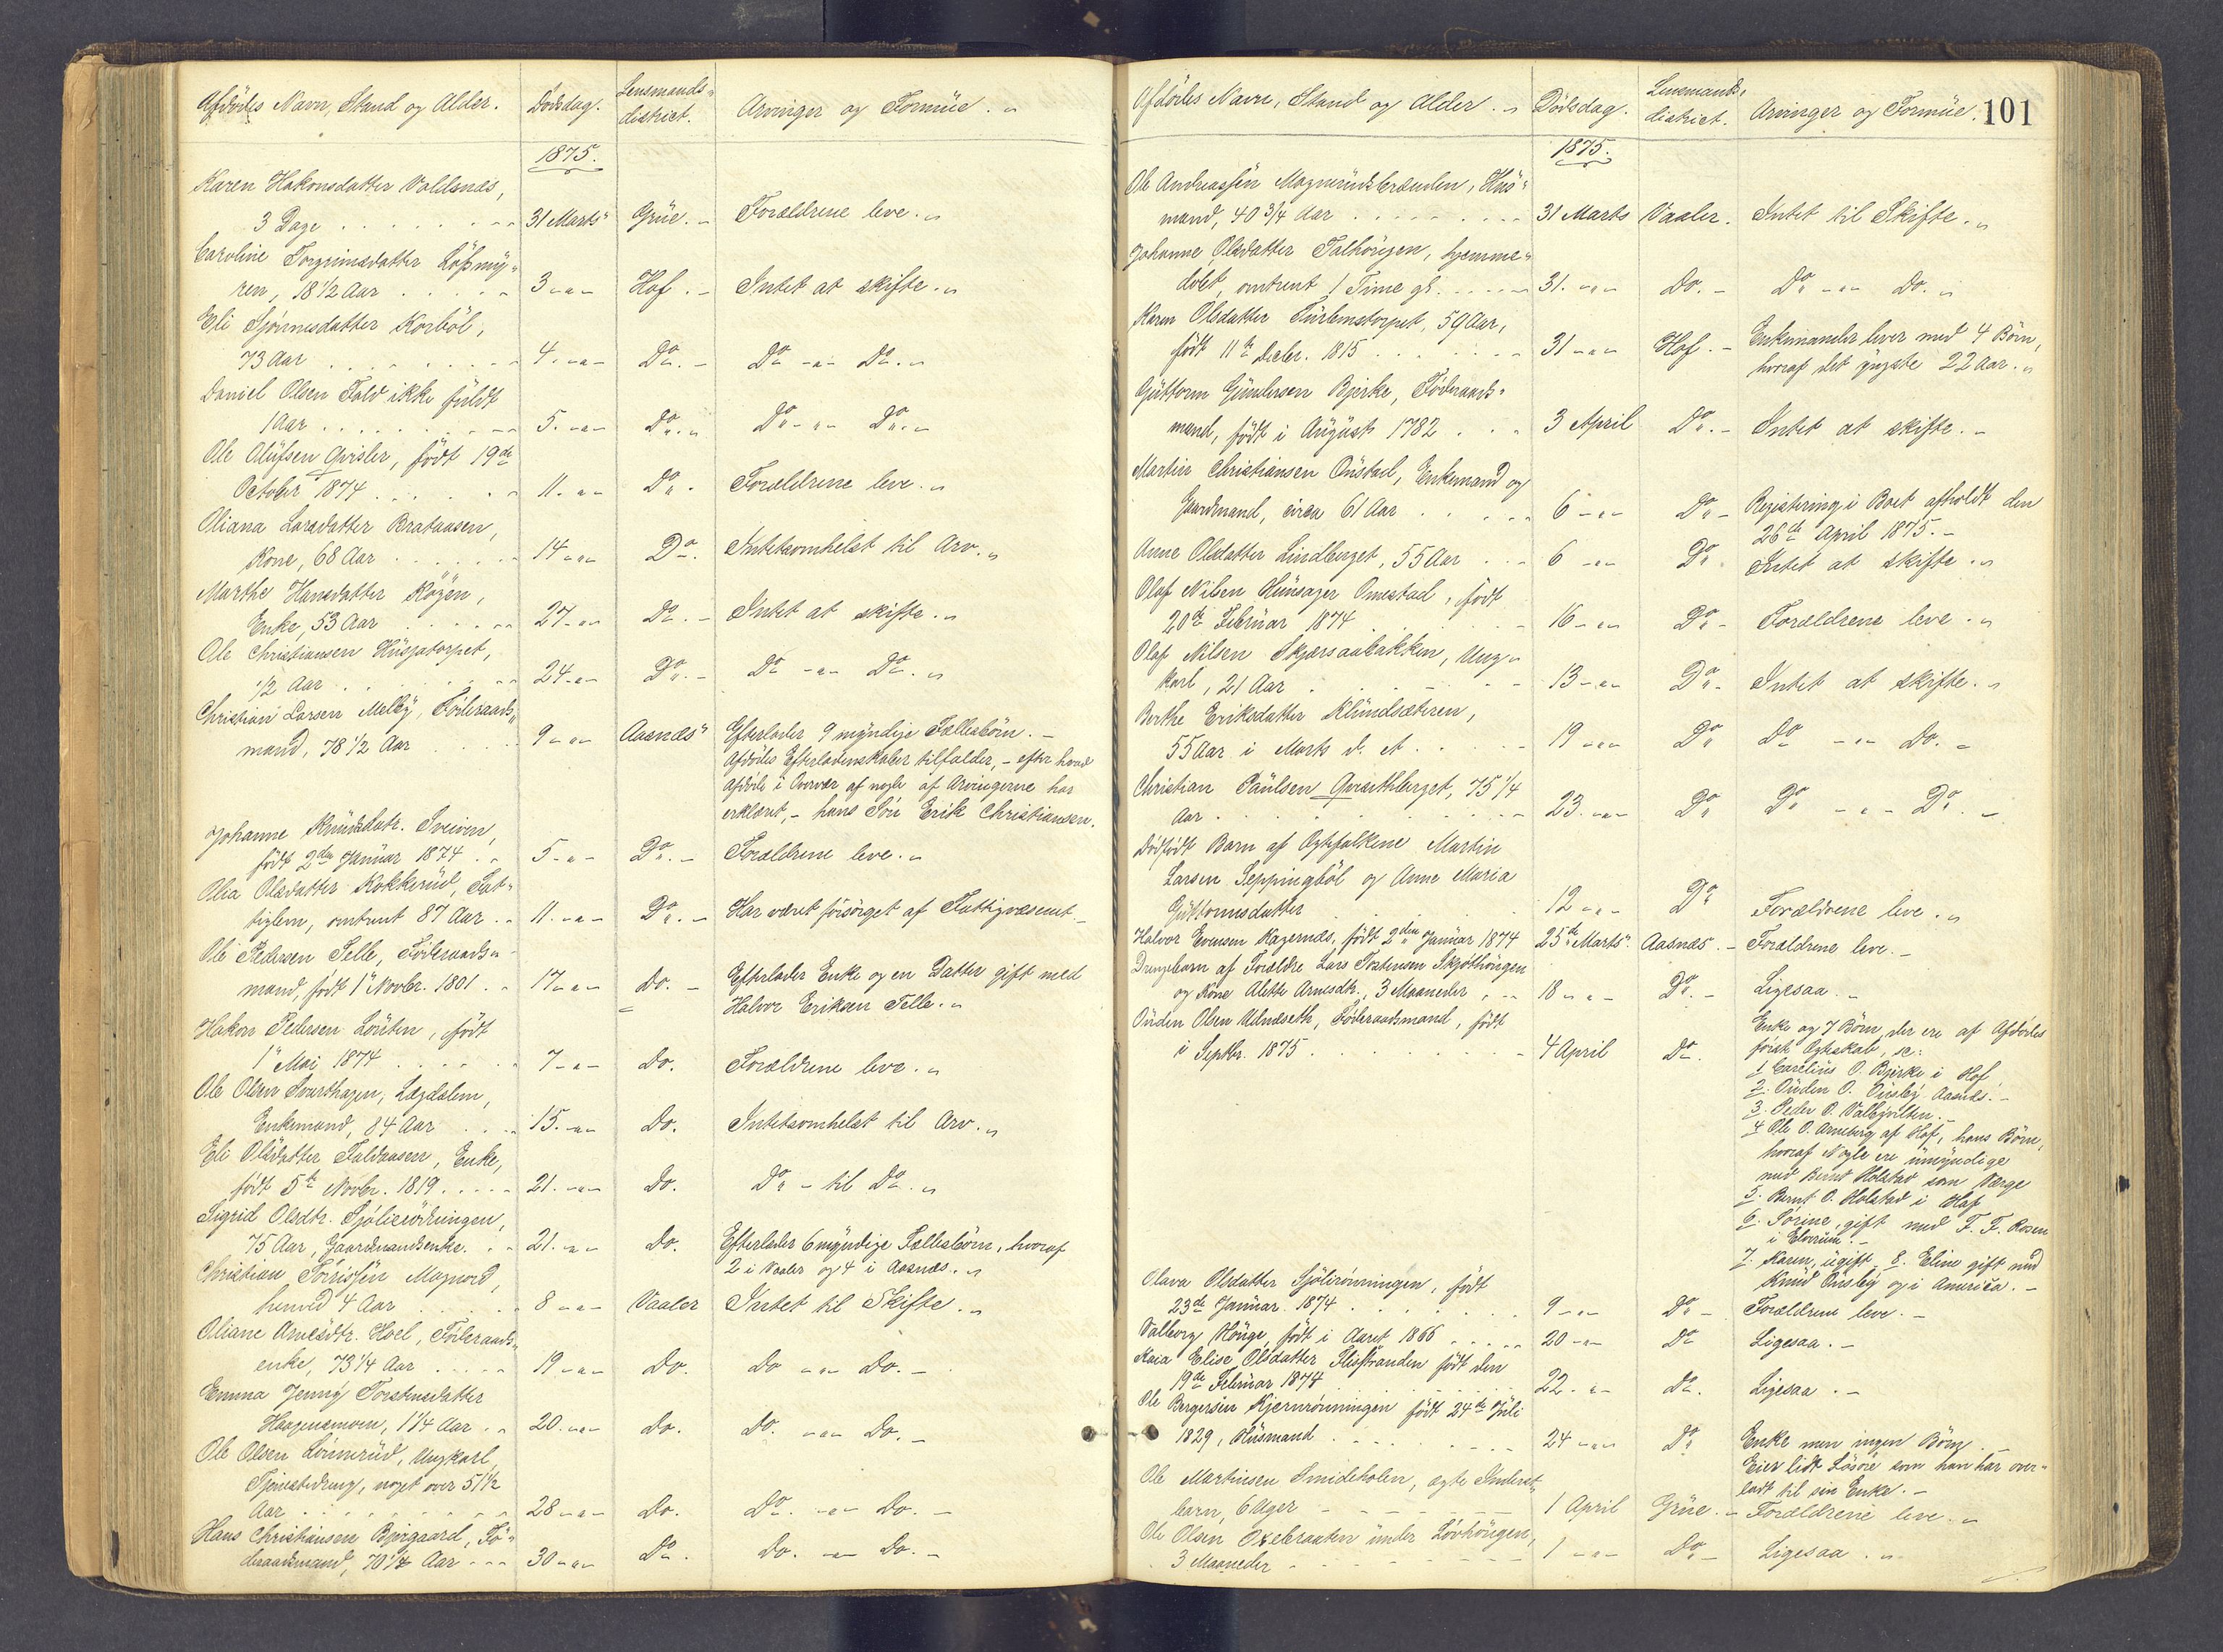 Afdödes Navn, Stand og Alder.
Dödsdag.
Lensmands-
district.
Arvinger og Formüe.
1875.
Karen Hakonsdatter Valdsnæs,
3 Dage 31 Marts Grüe. Forældrene leve.
Caroline Torgrimsdatter
ren, 18 1/2 Aar 3 Hof. Intet at skifte.
Eli Korböl,
73 Aar 4. Do. Do Do.
Daniel Olsen Fald ikke füldt
1 Aar 5. Do. Do Do.
Ole Olüfsen Qvisler, födt 19de
October 1874 11. Do. Forældrene leve.
Oliana Larsdatter Brataasen,
Kone, 68 Aar 14 Do. Intetsomhelst til Arv.
Marthe Hansdatter
Enke, 53 Aar 27 Do. Intet at skifte.
Ole Christiansen
1/2 Aar 24 Do. Do Do.
Christian Larsen Melby, Föderaads-
mand, 78 1/2 Aar 9 Aasnæs Efterlader 9 myndige Fællesbörn.
Afdödes Efterladenskaber tilfalder, - efter hvad
Afdöde i Overvær af nogle af Arvingerne har
erklæret, - hans Sön Erik Christiansen.
Johanne Knüdsdatr. Sveiven,
födt 2den Janüar 1874 5 Do. Forældrene leve.
Olia Olsdatter Kokkerüd, Fat-
tiglem, omtrent 87 Aar 11. Do. Har været forsörget af Fattigvæsenet
Ole Pedersen Selle, Föderaads-
mand, födt 1 Novbr. 1801 17 Do. Efterlader Enke og en Datter gift med
Halvor Eriksen Selle.
Hakon Pedersen Löüten, födt
1 Mai 1874 7 Do. Forældrene leve.
Ole Olsen Svarthagen, Lægdslem,
Enkemand, 84 Aar 15. Do. Intetsomhelst til Arv.
Eli Olsdatter Faldaasen, Enke,
födt 5te Novbr. 1819 21. Do. Do til Do.
Sigrid Olsdtr.
75 Aar, Gaardmandsenke. 21. Do. Efterlader 6 myndige Fællesbörn, hvoraf
2 i Vaaler og 4 i Aasnæs.
Christian Magnord,
henved 4 Aar 8 Vaaler Intet til Skifte.
Oliane Arnesdtr. Hoel, Föderaads-
enke, 73 1/4 Aar 19 Do. Do Do.
Emma Jenny Torstensdatter
Haagensmoen, 1 1/4 Aar 20. Do. Do. Do.
Ole Olsen Lönnerüd, Ungkarl,
Tjenestedreng, noget over 51 1/2
Aar 28 Do. Do. Do.
Hans Christiansen Bjørgaard, Fö-
deraadsmand, 70 1/4 Aar 30 Do. Do. Do.
Afdödes Navn, Stand og Alder.
Dödsdag.
Lensmands-
district.
Arvinger og Formüe.
101
1875.
Ole Andreassen Magnerüdsbraaden, Hüs-
mand, 40 3/4 Aar 31 Marts Vaaler. Intet til Skifte.
Johanne Olsdatter hjemme-
döbt, omtrent 1 Time gl. 31. Do. Do Do.
Karen Olsdatter 59 Aar,
födt 11te Decbr. 1815 31 Hof. Enkemanden lever med 4 Börn,
hvoraf det yngste 22 Aar.
Güttorm Gündersen Bjerke, Föderaads-
mand, födt i Aügüst 1782 3 April Do. Intet at skifte.
Martin Christiansen Onstad, Enkemand og
Gaardmand, circa 61 Aar 6 Do Registrering i Boet afholdt den
26de April 1875.
Anne Olsdatter Lindberget, 55 Aar 6 Do Intet at skifte.
Olaf Nilsen Hünsager Omestad, födt
20de Februar 1874 16 Do Forældrene leve.
Olaf Nilsen Skjærsaabakken, Ung-
karl, 21 Aar 13 Do Intet at skifte.
Berthe Eriksdatter Klündsæteren,
55 Aar i Marts d. A. 19 Do Do Do.
Christian Paülsen Qvarthberget, 75 1/4
Aar 23. Do Do Do.
Dödfödt Barn af Ægtefolkene Martin
Larsen Seppingböl og Anne Maria
Güttormsdatter 12 Do Forældrene leve.
Halvor Evensen Kagernæs, födt 2den Janüar 1874 25de Marts Aasnæs. Forældrene leve.
Drengebarn af Forældre Lars Torstensen
og Kone Alette Arnesdtr., 3 Maaneder 18 Do. Ligesaa.
Oüden Olsen Udnæseth, Föderaadsmand, födt
i Septbr. 1875 4 April Do. Enke og 7 Börn, der ere af Afdödes
förste Ægteskab, sc:
1 Carelius O. Bjerke i Hof
2. Oüden O. Aasnæs.
3. Peder O. Valbyvilten.
4 Ole O. Arneberg af Hof, hans Börn,
hvoraf Nogle ere ümyndige
med Bernt Holstad som Værge
5. Bernt O. Holstad i Hof
6. Sörine, gift med F. F. Rosen
i Elverüm.
7. Karen, ügift. 8. Eline gift med
Knüd og i America.
Olava Olsdatter Sjölirönningen, födt
23de Janüar 1874 9 Do Forældrene leve.
Valborg Houge, födt i Aaret 1866 20 Do Ligesaa.
Kaia Elise Olsdatter födt den
19de Februar 1874 22. Do. Ligesaa.
Ole Bergersen Kjernrönningen födt 24de Jüli
1829, Hüsmand 24 Do Enke men ingen Börn.
Eier lidt Lösöre som han har over-
ladt til sin Enke.
Ole Martinsen Smideholen, ægte
barn, 6 Uger 1 April Grüe. Forældrene leve.
Ole Olsen Oxebraaten ünder Lövhöugen,
3 Maaneder 1 Do Ligesaa.